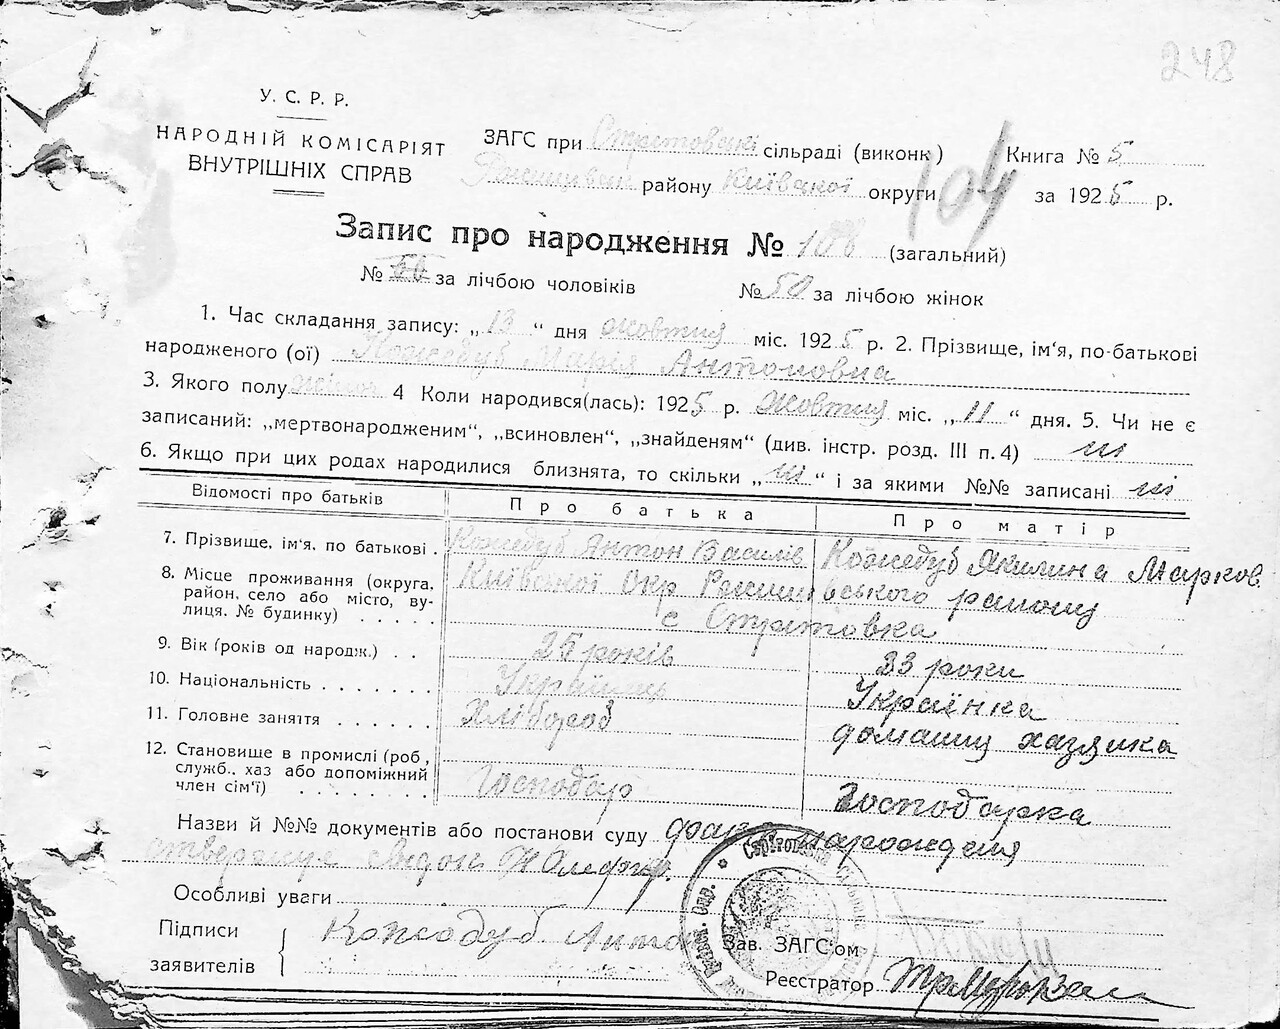 248
У. С. Р. Р.
НАРОДНІЙ КОМІСАРІЯТ
ВНУТРІШНІХ СПРАВ
ЗАГС при сільраді (виконк) Книга № 5
району Київської округи за 1925 р.
104
Запис про народження № 108 (загальний)
№ за лічбою чоловіків № 50 за лічбою жінок
1. Час складання запису: „13“ дня жовтня міс. 1925 р. 2. Прізвище, ім'я, по-батькові
народженого (ої) Кожедуб Марія Антоновна
3. Якого полу жіноч 4 Коли народився(лась): 1925 р. Жовтня міс. „11“ дня. 5. Чи не є
записаний: „мертвонародженим“, „всиновлен“, „знайденям“ (див. інстр. розд. III п. 4) ні
6. Якщо при цих родах народилися близнята, то скільки „ні“ і за якими №№ записані ні
Відомості про батьків Про батька Про матір
7. Прізвище, ім'я, по батькові. Кожедуб Антон Василів Кожедуб Якилина Марков.
8. Місце проживання (округа, район, село або місто, вулиця, № будинку) Київської Окр району
с
9. Вік (років од народж.) 25 років 23 роки
10. Національність Українець Українка
11. Головне заняття Хлібороб домашня хазяйка
12. Становище в промислі (роб, служб., хаз або допоміжний член сім'ї) Господар Господарка
Назви й №№ документів або постанови суду факт народження
Особливі уваги
Підписи заявителів Кожедуб Антон
Зав. ЗАГС'ом
Реєстратор